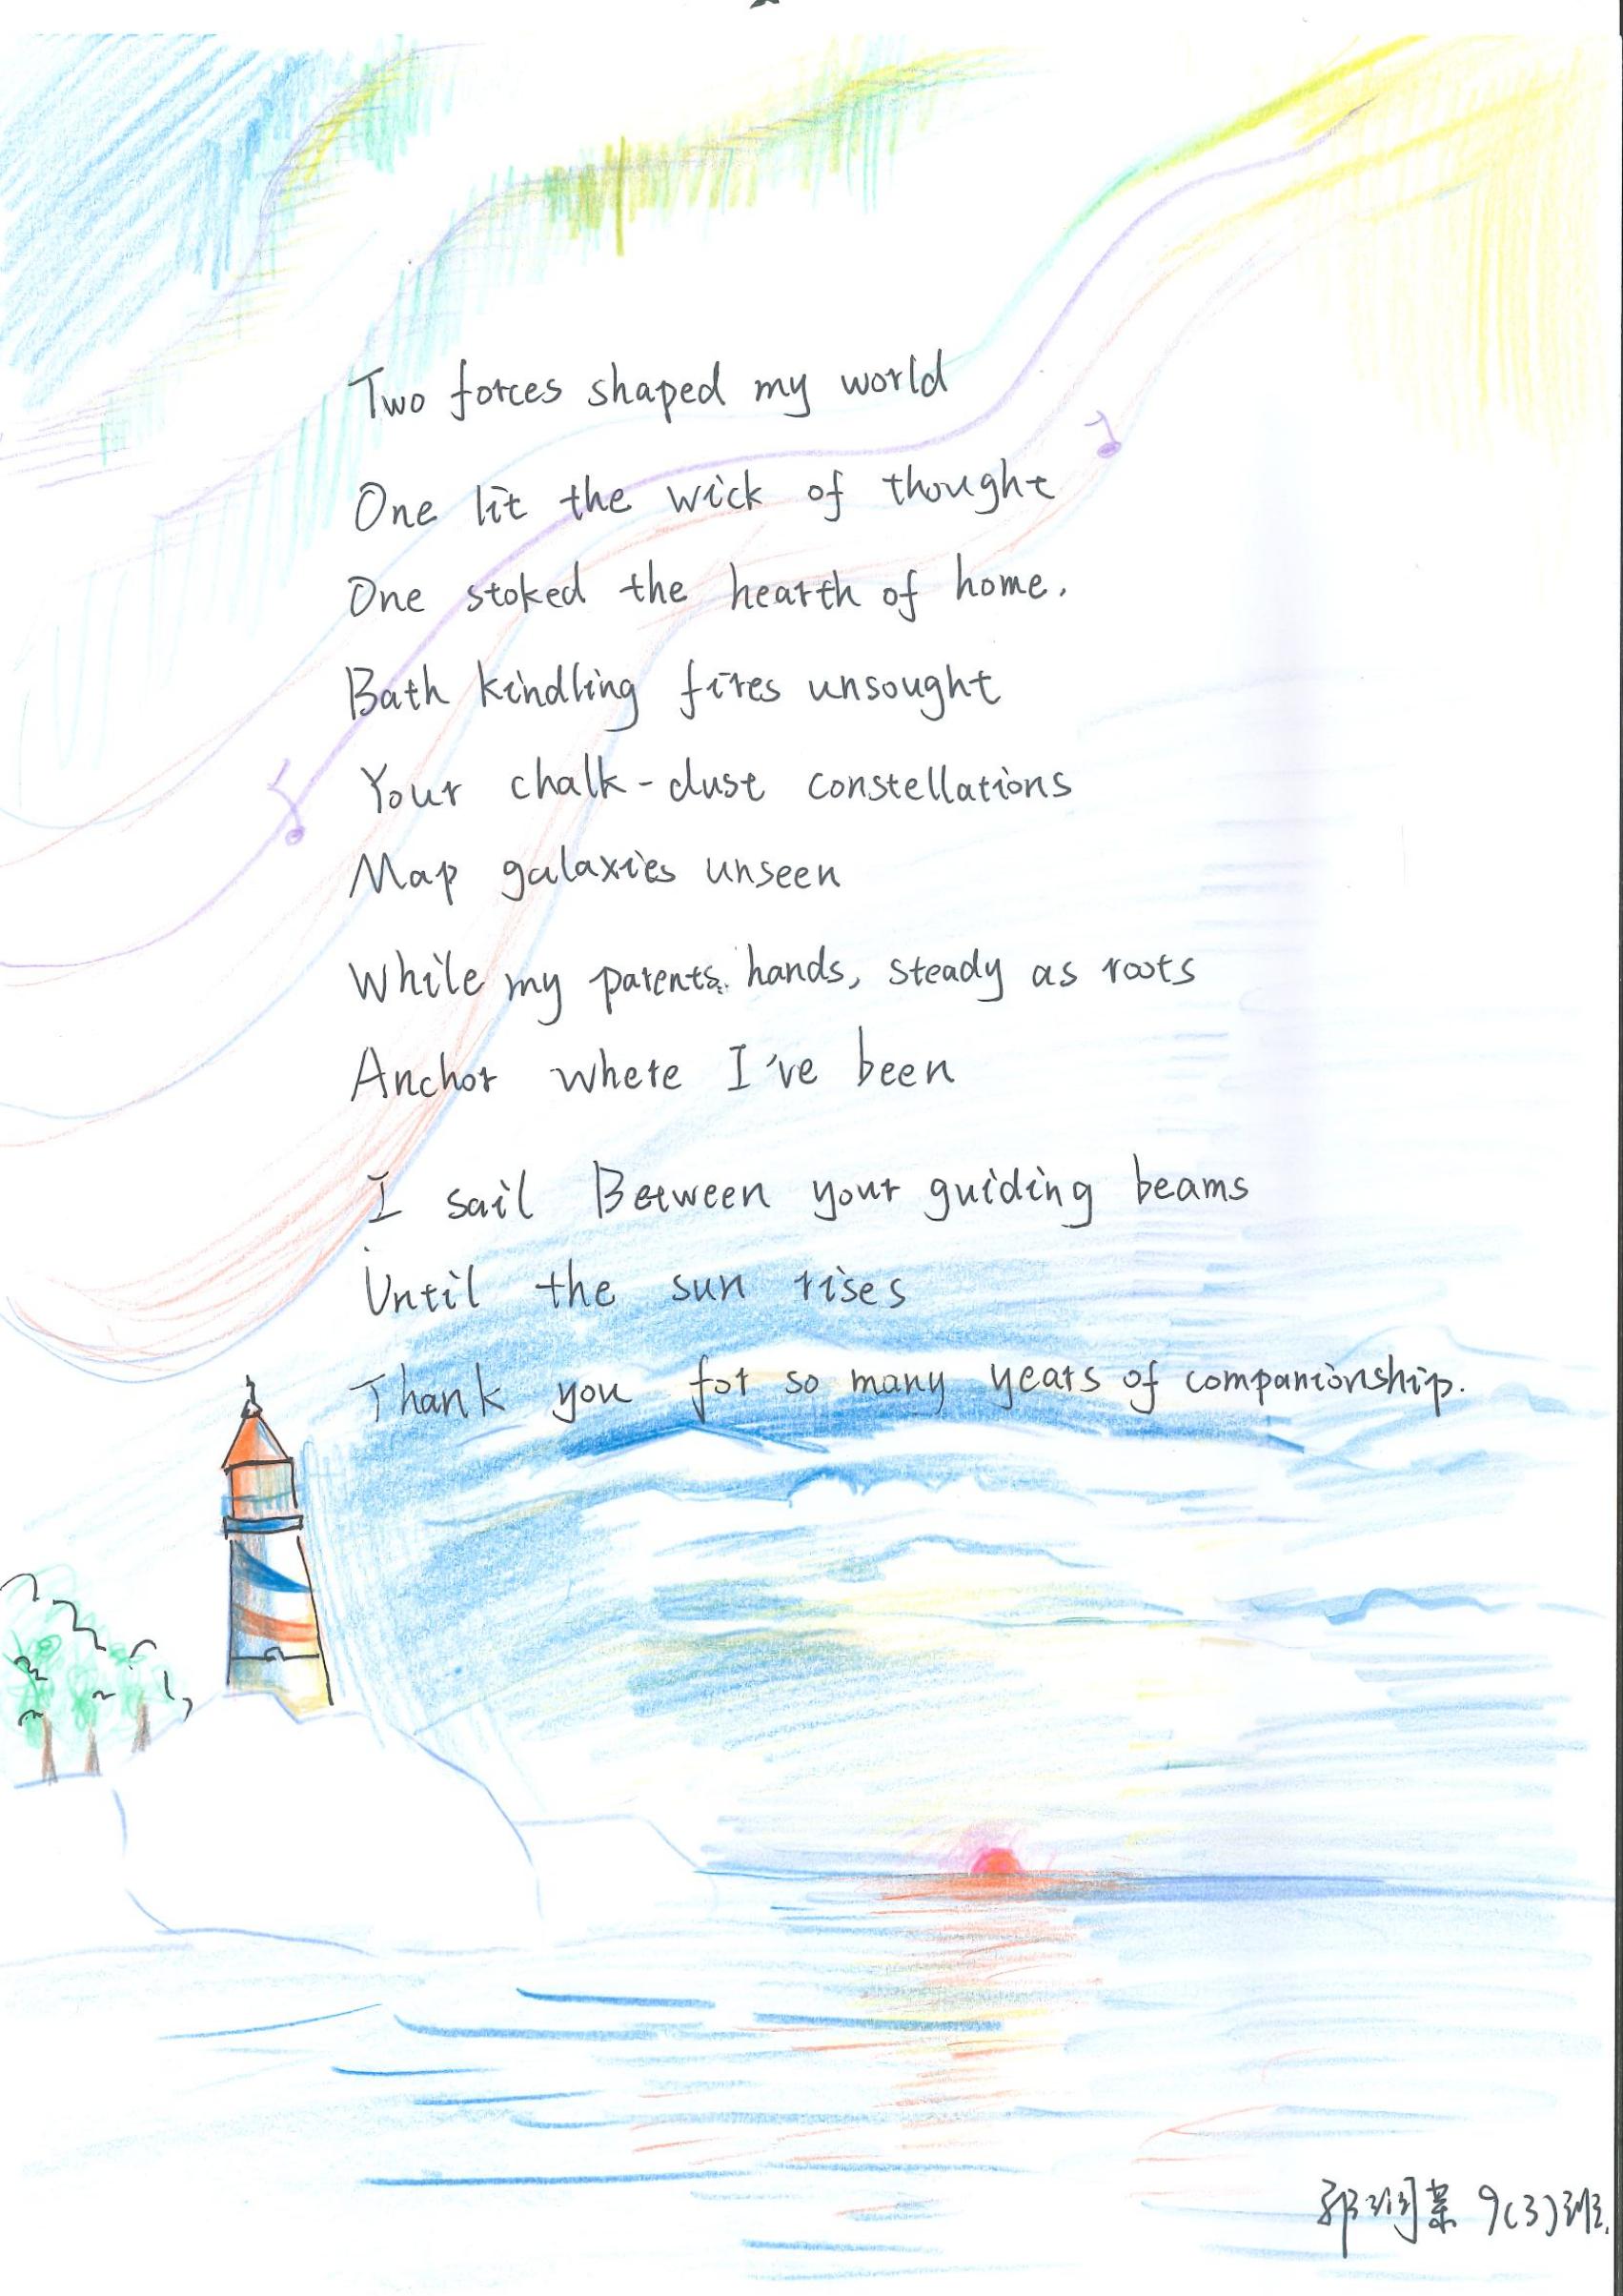 Two forces shaped my world
One lit the wick of thought
One stoked the hearth of home.
Bath kindling fires unsought
Your chalk-dust constellations
Map galaxies unseen
While my parents hands, steady as roots
Anchor where I've been
I sail Between your guiding beams
Until the sun rises
Thank you for so many years of companionship.
9(3)班